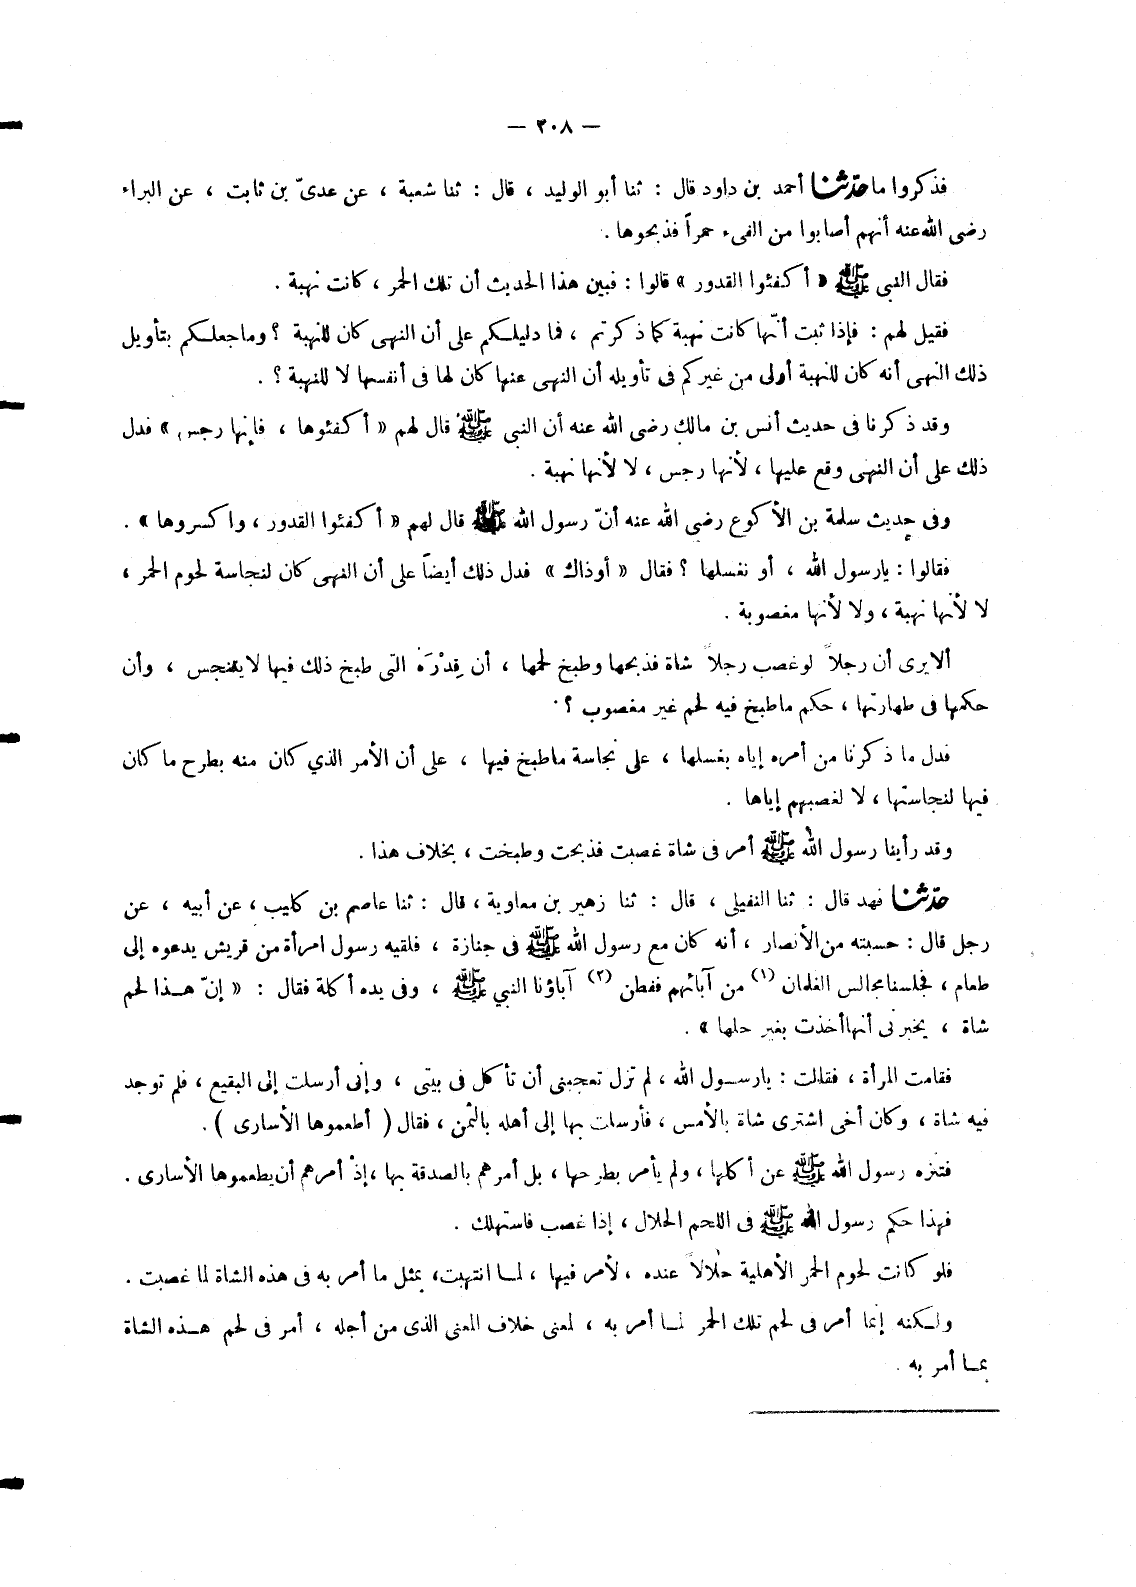 — ٢٠٨ —
فذكروا ما حدّثنا أحمد بن داود قال : ثنا أبو الوليد ، قال : ثنا شعبة ، عن عدىّ بن ثابت ، عن البراء
رضى الله عنه أنهم أصابوا من الفىء حمراً فذبحوها .
فقال النبى ﷺ « أكفئوا القدور » قالوا : فبين هذا الحديث أن تلك الحمر ، كانت نهبة .
فقيل لهم : فإذا ثبت أنّها كانت نهبة كما ذكرتم ، فما دليلكم على أن النهى كان للنهبة ؟ وما جعلكم بتأويل
ذلك النهى أنه كان للنهبة أولى من غيركم فى تأويله أن النهى عنها كان لها فى أنفسها لا للنهبة ؟ .
وقد ذكرنا فى حديث أنس بن مالك رضى الله عنه أن النبى ﷺ قال لهم « أكفئوها ، فإنها رجس » فدل
ذلك على أن النهى وقع عليها ، لأنها رجس ، لا لأنها نهبة .
وفى حديث سلمة بن الأكوع رضى الله عنه أنّ رسول الله ﷺ قال لهم « أكفئوا القدور ، واكسروها » .
فقالوا : يارسول الله ، أو نغسلها ؟ فقال « أوذاك » فدل ذلك أيضاً على أن النهى كان لنجاسة لحوم الحمر ،
لا لأنها نهبة ، ولا لأنها مغصوبة .
ألا يرى أن رجلاً لو غصب رجلاً شاة فذبحها وطبخ لحمها ، أن قِدْرَه التى طبخ ذلك فيها لا يتنجس ، وأن
حكمها فى طهارتها ، حكم ماطبخ فيه لحم غير مغصوب ؟ .
فدل ما ذكرنا من أمره إياه بغسلها ، على نجاسة ماطبخ فيها ، على أن الأمر الذي كان منه بطرح ما كان
فيها لنجاستها ، لا لغصبهم إياها .
وقد رأينا رسول الله ﷺ أمر فى شاة غصبت فذبحت وطبخت ، بخلاف هذا .
حدّثنا فهد قال : ثنا النفيلى ، قال : ثنا زهير بن معاوية ، قال : ثنا عاصم بن كليب ، عن أبيه ، عن
رجل قال : حسبته من الأنصار ، أنه كان مع رسول الله ﷺ فى جنازة ، فلقيه رسول امرأة من قريش يدعوه إلى
طعام ، فجلسنا مجالس الغلمان (١) من آبائهم ففطن (٢) آباؤنا النبي ﷺ ، وفى يده أكلة فقال : « إنّ هذا لحم
شاة ، يخبرنى أنها أخذت بغير حلها » .
فقامت المرأة ، فقالت : يارسول الله ، لم تزل تعجبنى أن تأكل فى بيتى ، وإنى أرسلت إلى البقيع ، فلم توجد
فيه شاة ، وكان أخى اشترى شاة بالأمس ، فأرسلت بها إلى أهله بالثمن ، فقال ( أطعموها الأسارى ) .
فتنزه رسول الله ﷺ عن أكلها ، ولم يأمر بطرحها ، بل أمرهم بالصدقة بها ، إذْ أمرهم أن يطعموها الأسارى .
فهذا حكم رسول الله ﷺ فى اللحم الحلال ، إذا غصب فاستهلك .
فلو كانت لحوم الحمر الأهلية حلالاً عنده ، لأمر فيها ، لما انتهبت، بمثل ما أمر به فى هذه الشاة لما غصبت .
ولكنه إنما أمر فى لحم تلك الحمر لما أمر به ، لمعنى خلاف المعنى الذى من أجله ، أمر فى لحم هذه الشاة
بما أمر به .